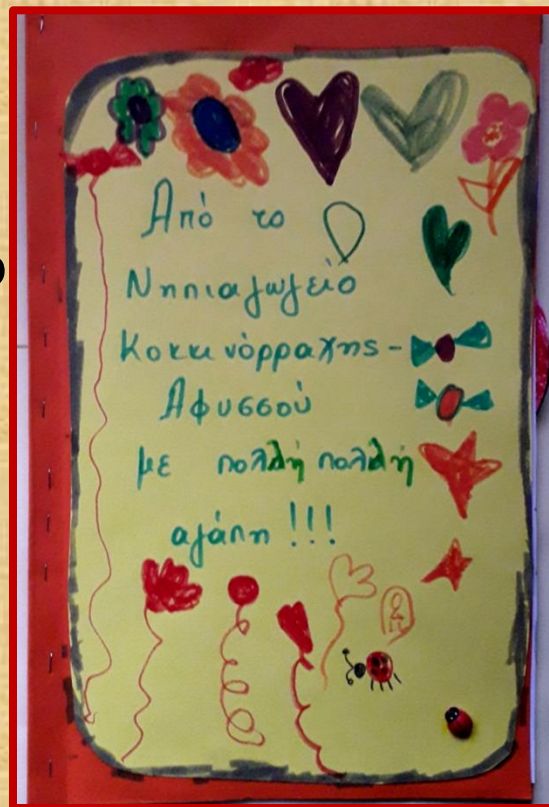 Από το
Νηπιαγωγείο
Κοκκινόρραχης -
Αφυσσού
με πολλή πολλή
αγάπη !!!